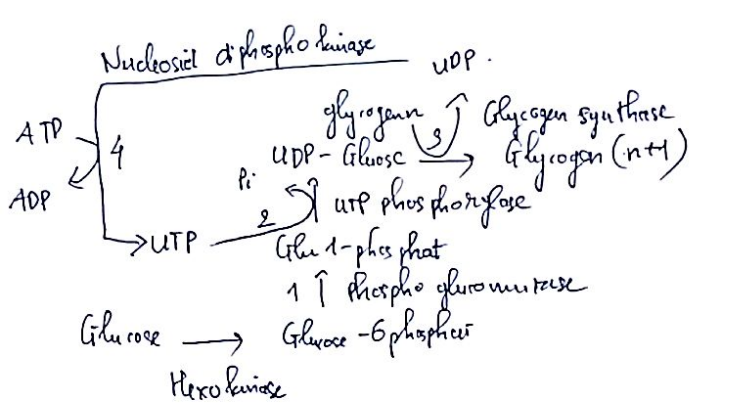 Nucleosid diphospho kinase
UDP.
ATP
4
ADP
glycogenn
3
Glycogen synthase
UDP - Glucose
Glycogen (n+1)
Pi
2
UTP phosphorylase
UTP
Glu 1-phosphat
1
phospho glucomutase
Glucose
Glucose -6phosphat
Hexokinase